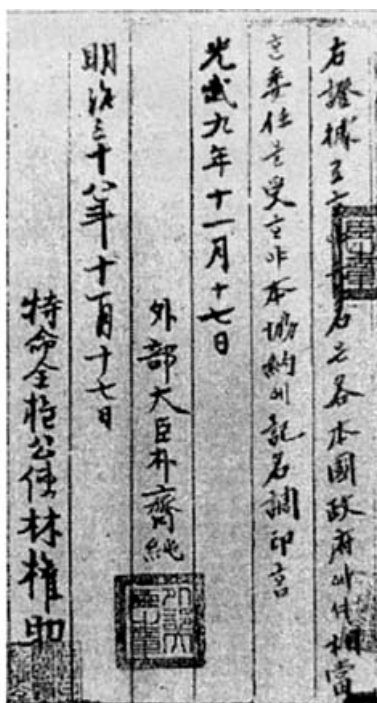 右證據로ᄒᆞ야下名은各本國政府에셔相當
ᄒᆞᆫ委任을受ᄒᆞ야本協約에記名調印홈
光武九年十一月十七日
外部大臣朴齊純
明治三十八年十一月十七日
特命全權公使林權助